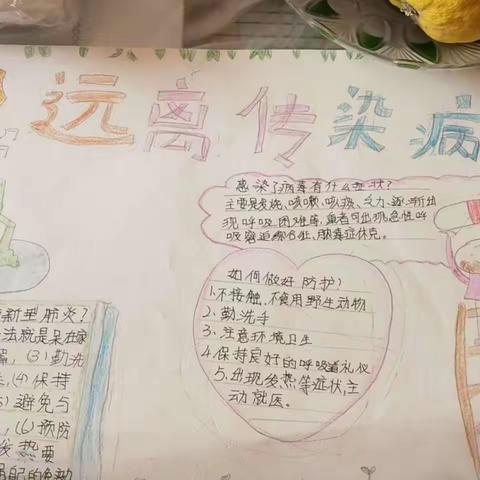 远离传染病
感染了病毒有什么症状?
主要是发烧、咳嗽、咳痰、乏力、逐渐出
现呼吸困难等,患者可出现急性呼
吸窘迫综合征、脓毒症休克。
如何做好防护?
1、不接触、不食用野生动物
2、勤洗手
3、注意环境卫生
4、保持良好的呼吸道礼仪
5、出现发热等症状,主
动就医。
新型肺炎?
法就是呆在家
(3)勤洗
(4)保持
避免与
,(6)预防
发热要